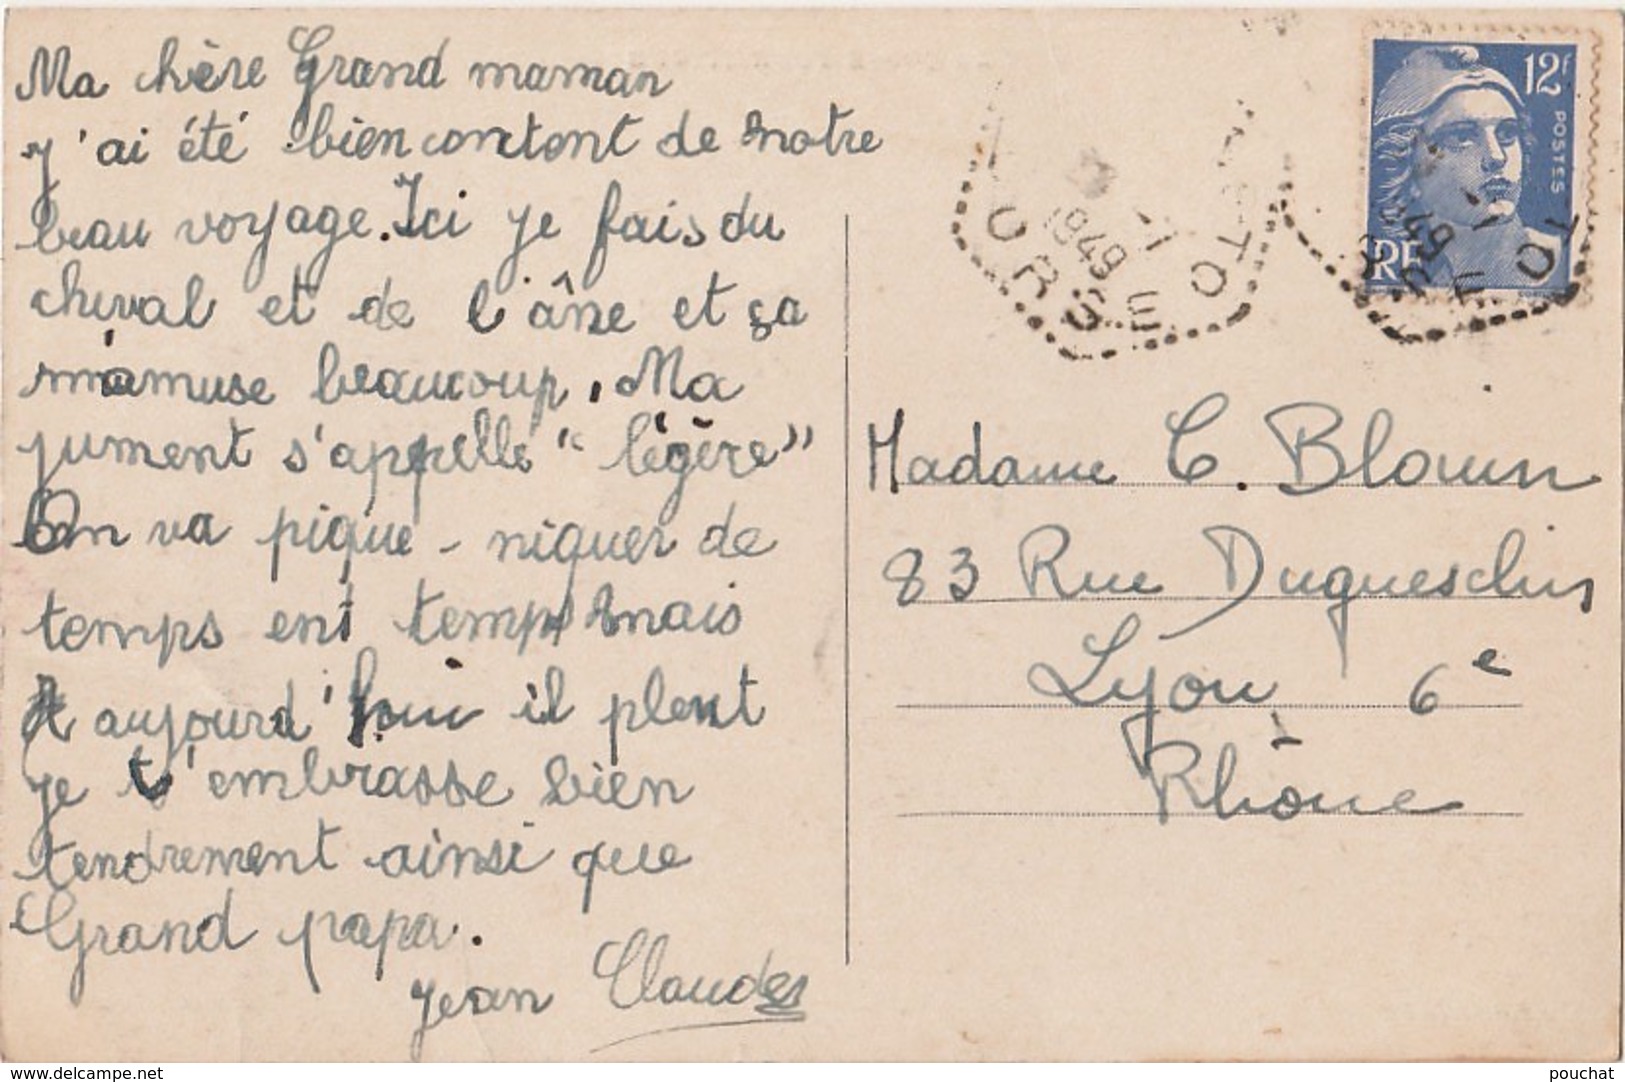 Ma chère Grand maman
j'ai été bien content de notre
beau voyage. Ici je fais du
cheval et de l'âne et ça
m'amuse beaucoup. Ma
jument s'appelle "légère"
On va pique-niquer de
temps en temps mais
aujourd'hui il pleut
je t'embrasse bien
tendrement ainsi que
Grand papa.
Jean Claude
12F
POSTES
RF
1949
1949
Madame C. Blouin
83 Rue Duguesclin
Lyon 6e
Rhône
www.delcampe.net
pouchat